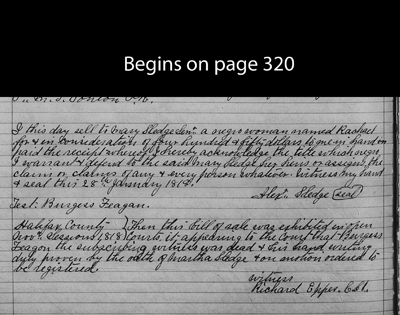 Begins on page 320
I this day sell to Mary Sledge Senr. a negro woman named Rachael
for & in Consideration of four hundred & fifty dollars to me in hand
paid the receipt whereof I hereby acknowledge the title which negro
I warrant & defend to the said Mary Sledge her heirs or assigns, the
claim or claims of any & every person whatever. Witness my hand
& seal this 28th January 1818.
Alexr. Sledge (seal)
Test: Burgess Feagan.
Halifax County } Then this bill of sale was exhibited in open
Sessions 1818 } Court & it appearing to the Court that Burgess
Feagon the subscribing witness was dead & his hand writing
duly proven by the oath of Martha Sledge & on motion ordered to
be registered.
Witness
Richard Eppes. Clk.